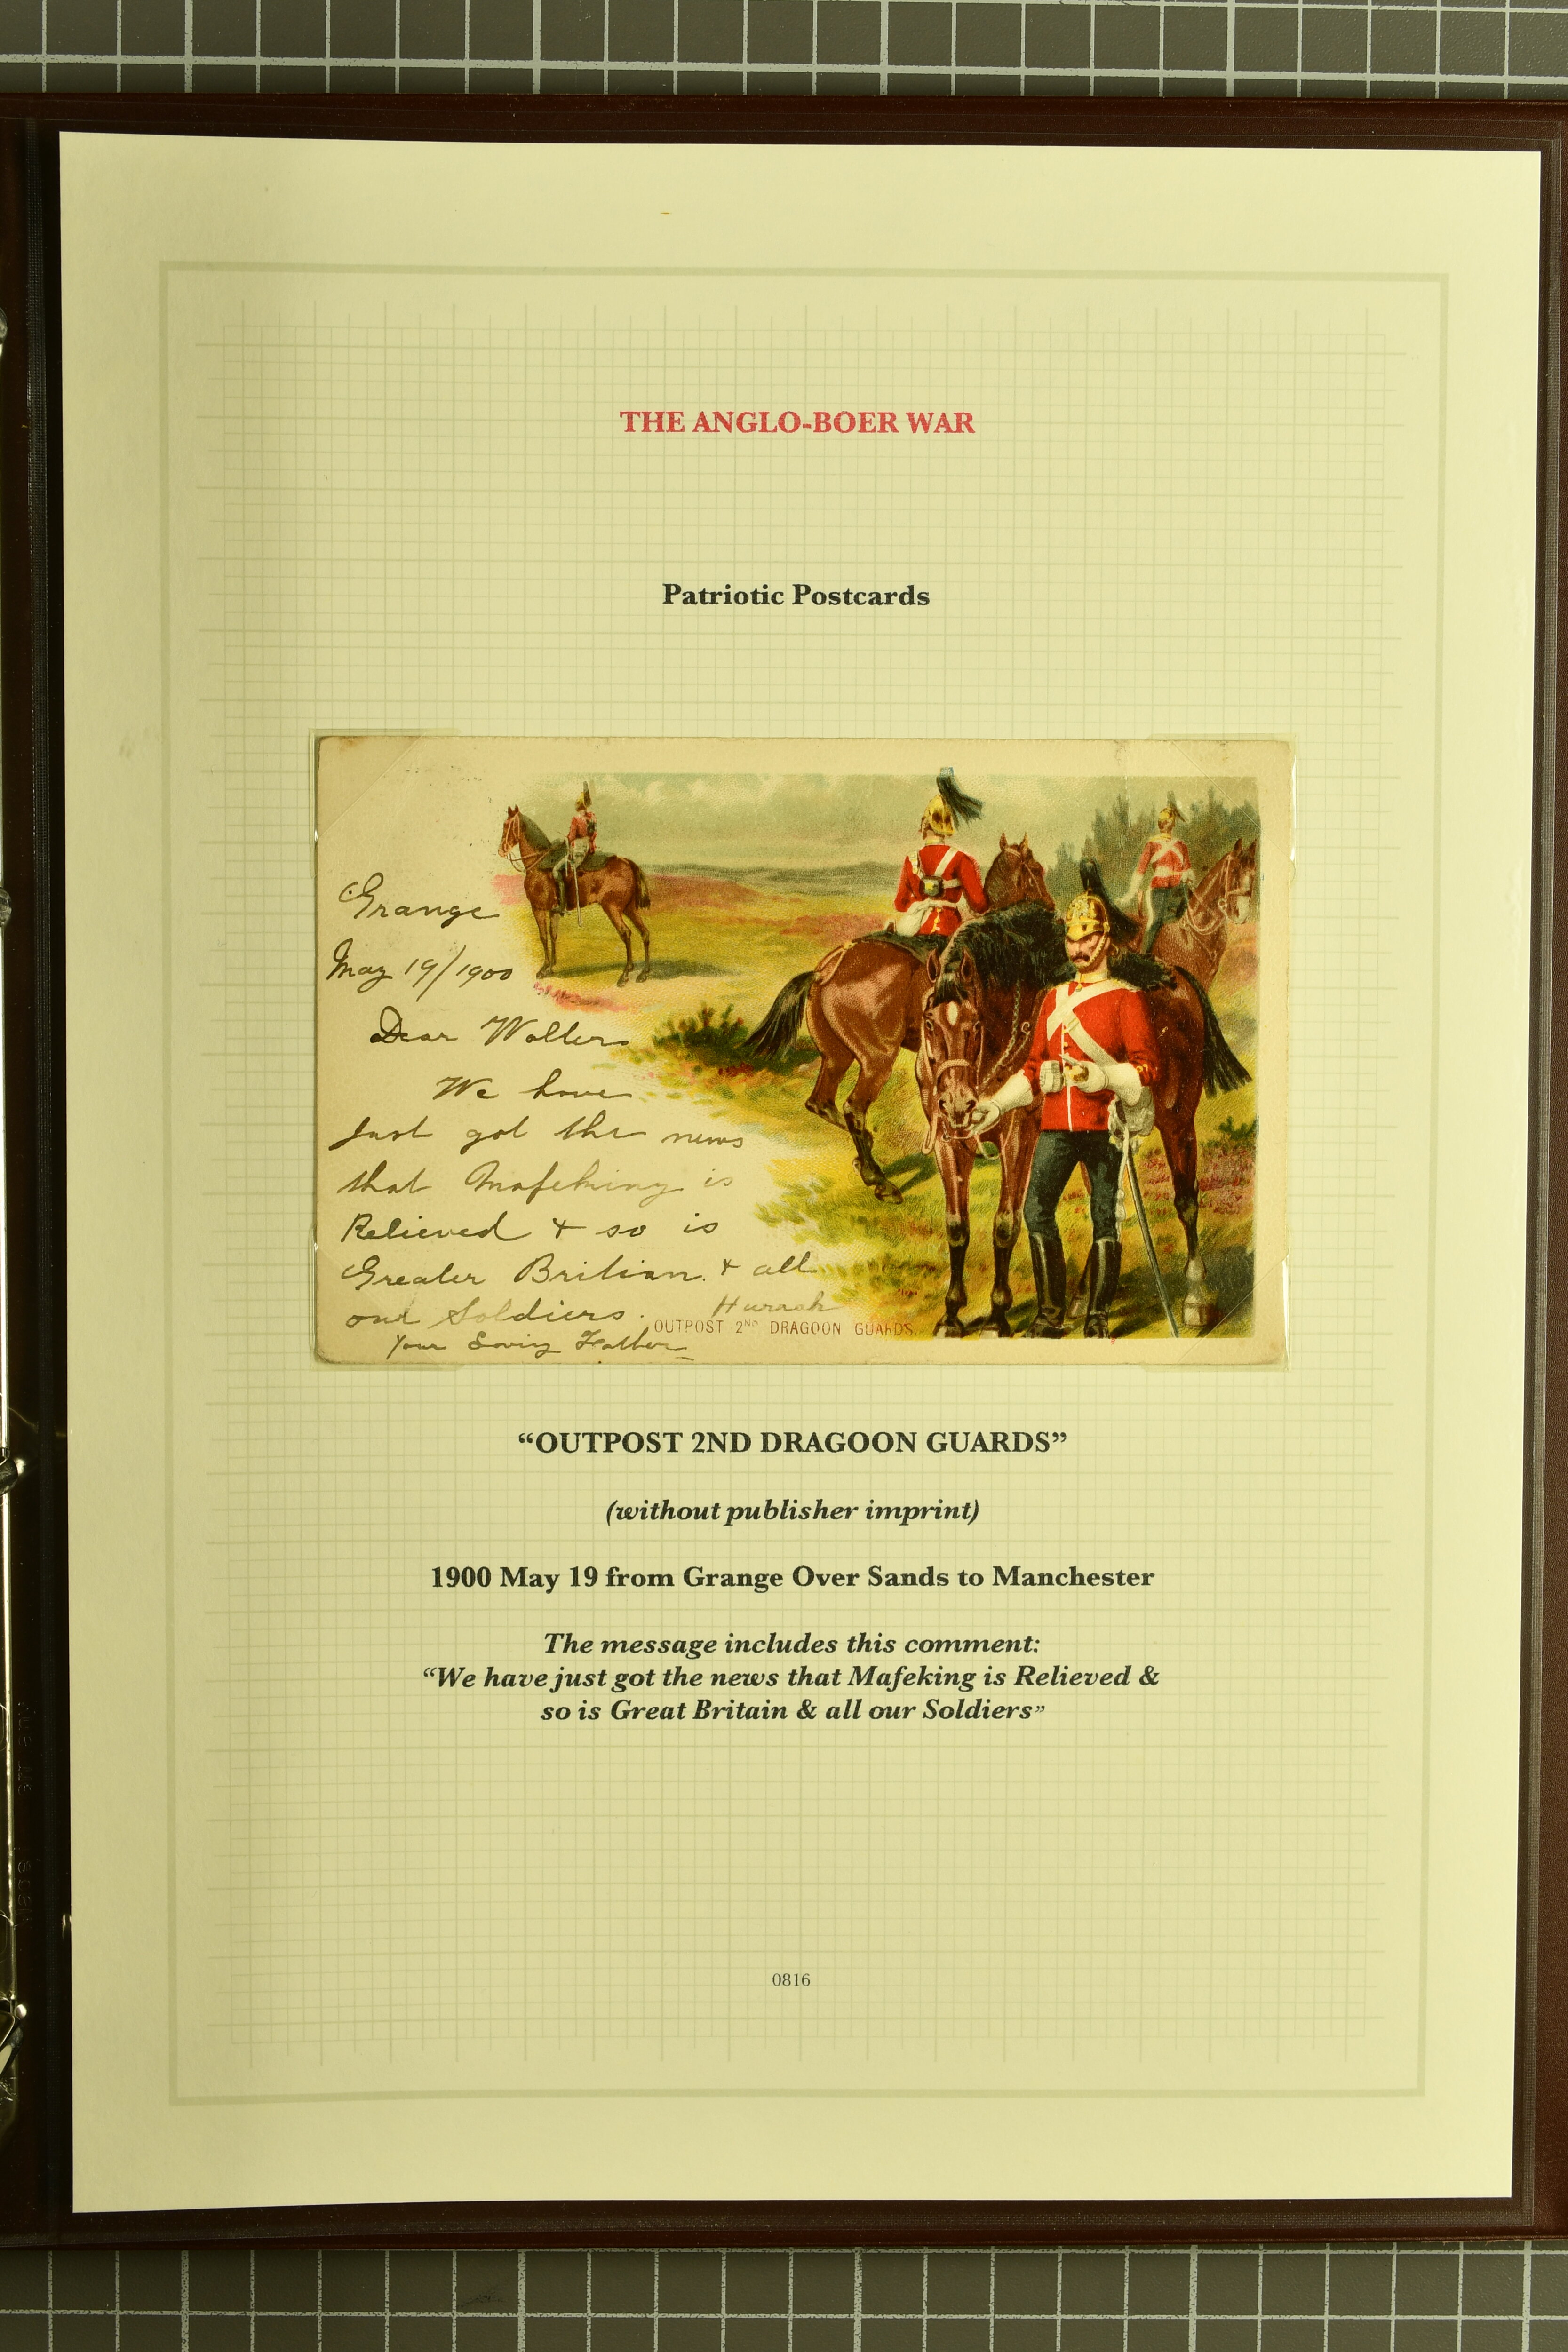 THE ANGLO-BOER WAR
Patriotic Postcards
Grange
May 19/1900
Dear Walter
We have
Just got the news
that Mafeking is
Relieved & so is
Greater Britian. & all
our Soldiers. Hurrah
OUTPOST 2ND DRAGOON GUARDS.
Your Loving Father
“OUTPOST 2ND DRAGOON GUARDS”
(without publisher imprint)
1900 May 19 from Grange Over Sands to Manchester
The message includes this comment:
“We have just got the news that Mafeking is Relieved &
so is Great Britain & all our Soldiers”
0816